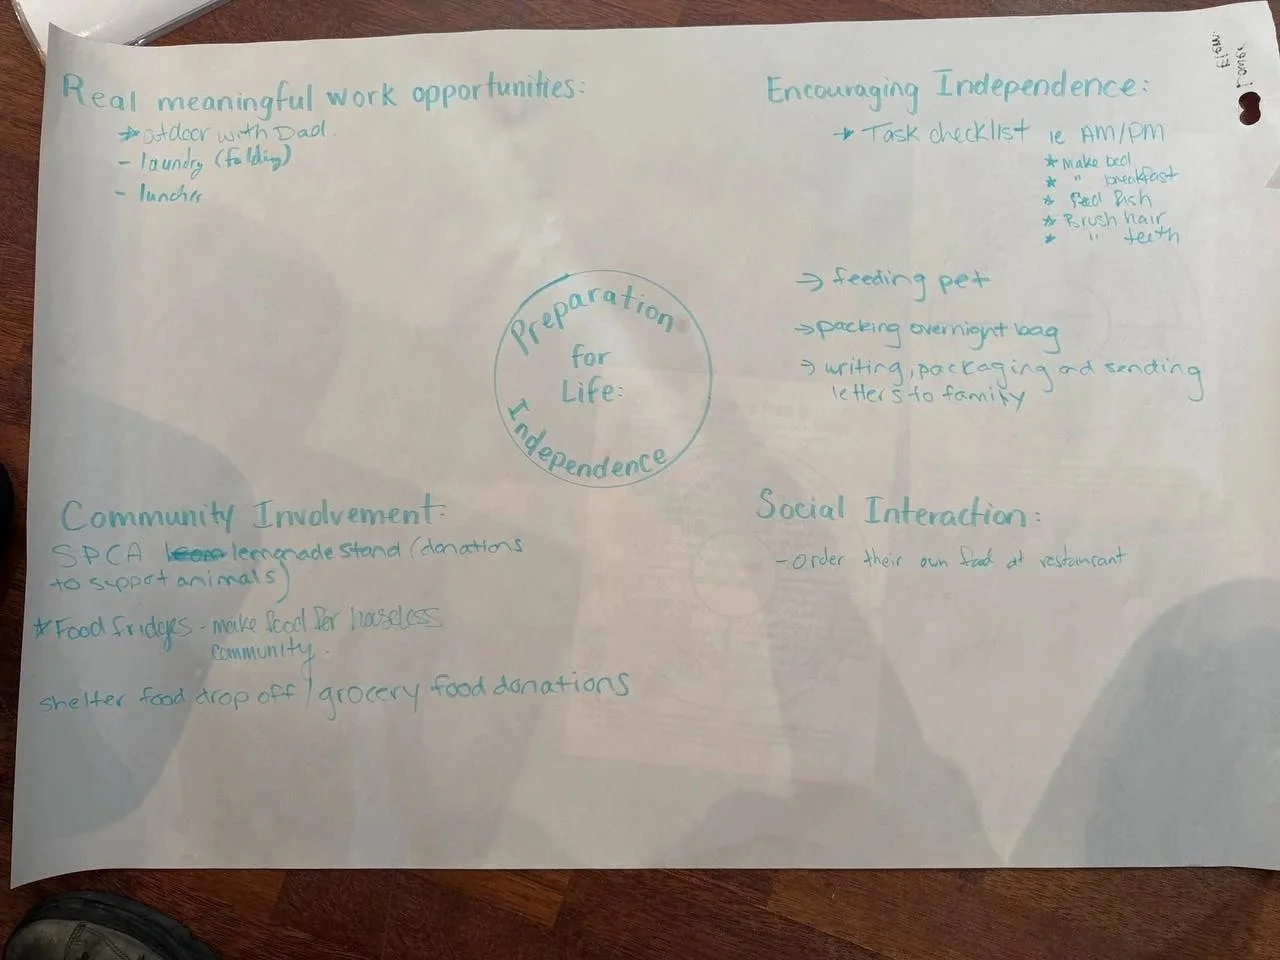 Elem.
Lower
Real meaningful work opportunities:
* outdoor with Dad.
- laundry (folding)
- lunches
Encouraging Independence:
* Task checklist ie AM/PM
* Make bed
* " breakfast
* feed fish
* Brush hair
* " teeth
→ feeding pet
→ packing overnight bag
→ writing, packaging and sending
letters to family
Preparation
for
Life:
Independence
Community Involvement:
SPCA lemonade stand (donations
to support animals)
* Food fridges - make food for houseless
community.
shelter food drop off / grocery food donations
Social Interaction:
- Order their own food at restaurant